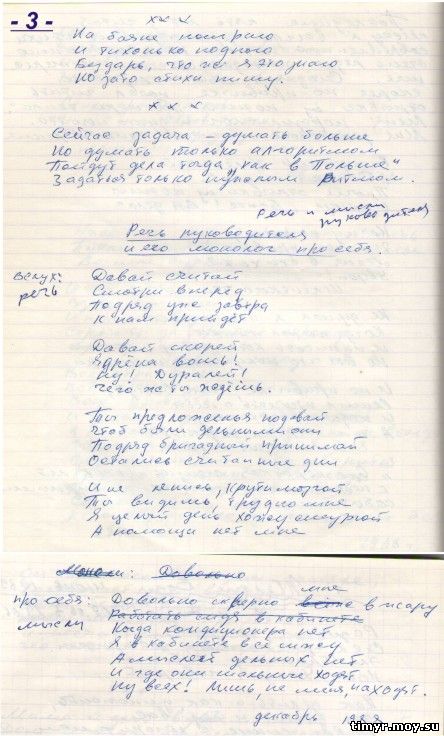 - 3 -
х х х
На баяне поиграю
И тихонько подпою
Бездарь, что же я это знаю
Но зато стихи пишу.
х х х
Сейчас задача – думать больше
Но думать только алгоритмом
Пойдут дела тогда, "как в Польше"
Задаться только нужным ритмом.
Речь и мысли
руководителя
Речь руководителя
и его монолог про себя.
вслух:
речь
Давай считай
Смотри вперёд
Подряд уже завтра
К нам придёт
Давай скорей
Ядрёна вошь!
Ну! Дуралей!
Чего же ты ждёшь.
Ты предложенья подавай
Чтоб были дельными они
Подряд бригадный принимай
Остались считанные дни
И не ленись, крути мозгой
Ты видишь, трудно мне
Я целый день хожу
А помощи нет мне
: Довольно
про себя:
мысли
Довольно скверно мне в жару
Работать сидя в кабинете
Когда кондиционера нет
Я в кабинете всё сижу
А мыслей дельных нет
И где они шальные ходят
Ну всех! Лишь, не меня, находят.
декабрь
timyr.moy.su